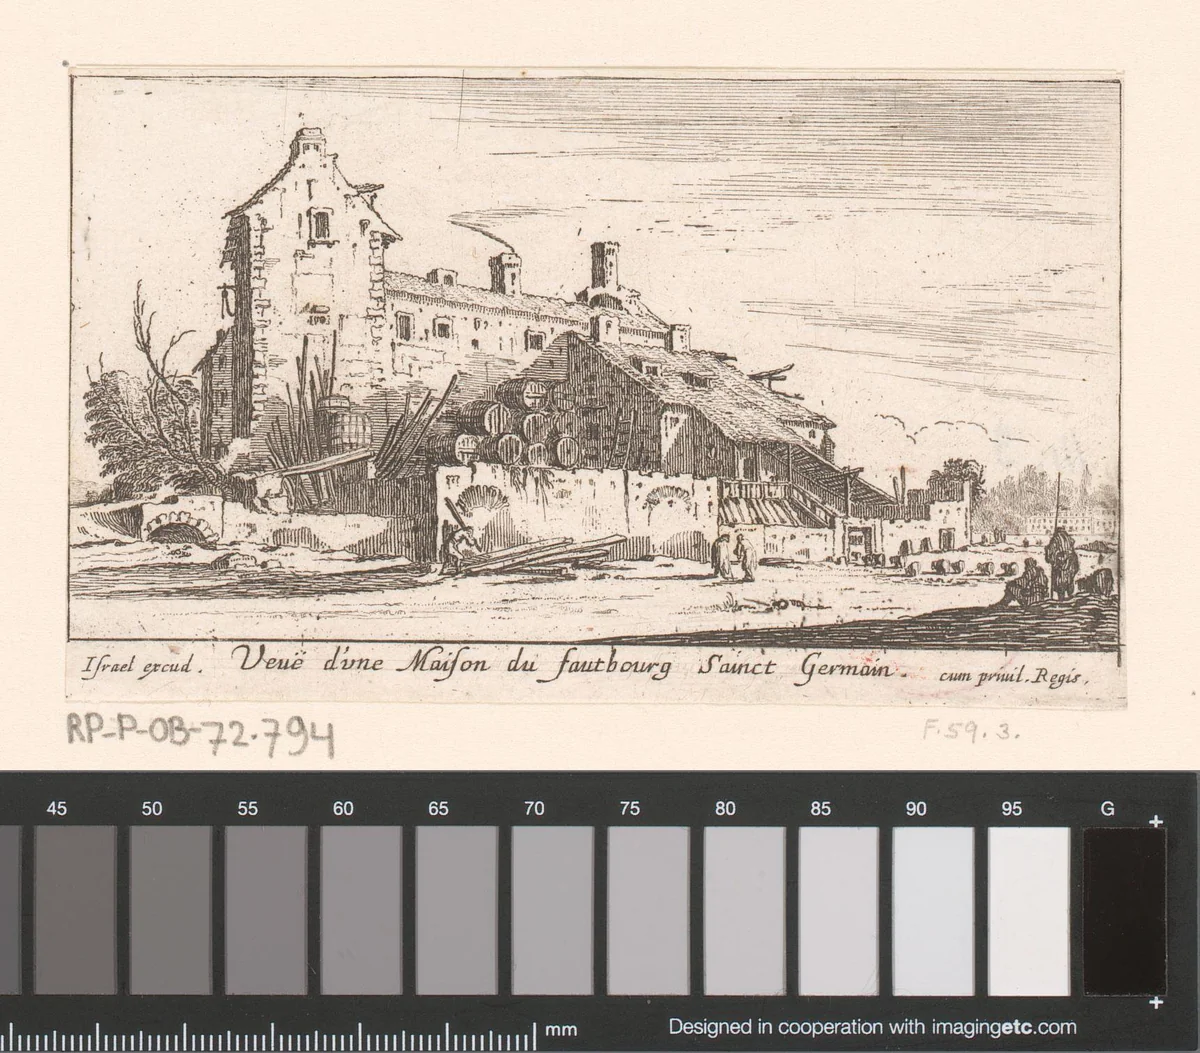 Iſrael excud. Veuë d'vne Maiſon du fautbourg Sainct Germain. cum priuil. Regis.
RP-P-OB-72.794 F.59.3.
45 50 55 60 65 70 75 80 85 90 95 G
mm Designed in cooperation with imagingetc.com